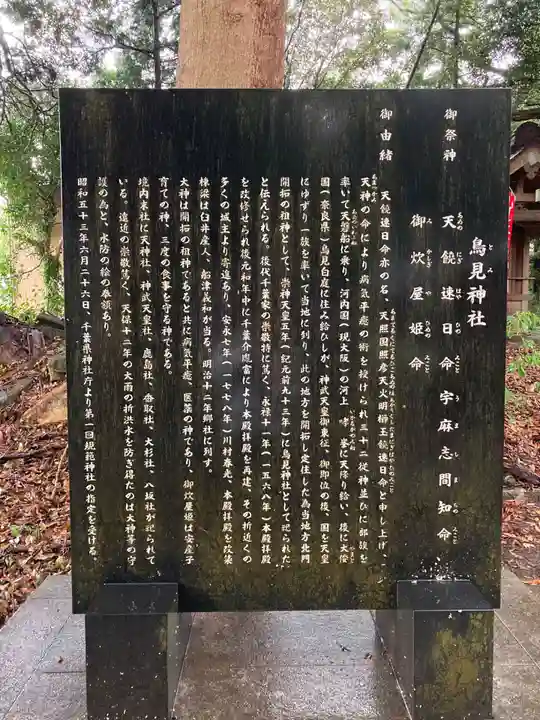 鳥見神社
とみ
御祭神 天饒速日命 宇麻志間知命
御炊屋姫命
御由緒 天饒速日命亦の名、天照国照彦天火明櫛玉饒速日命と申し上げ、
天神の命により病気平癒の術を授けられ三十二従神並びに部族を
率いて天磐船に乗り、河内国(現大阪)の河上 哮ヶ峯に天降り給い、後に大倭
国(奈良県)鳥見白庭に住み給ひしが、神武天皇御東征、御即位の後、国を天皇
にゆずり一族を率いて当地に到り、此の地方を開拓し定住した為当地方北門
開拓の祖神として、崇神天皇五年(紀元前九十三年)に鳥見神社として祀られた
と伝えられる。後代千葉家の崇敬特に篤く、永禄十一年(一五六八年)本殿拝殿
を改修せられ後元
年中に千葉介
富により本殿拝殿を再建、その折近くの
多くの城主より寄進あり、安永七年(一七七八年)川村春光、本殿拝殿を改築
棟梁は臼井産人、船津義和が当る。明治十二年郷社に列す。
大神は開拓の祖神であると共に病気平癒、医薬の神であり、御炊屋姫は安産子
育ての神、三度の食事を守る神である。
境内末社に天神社、神武天皇社、鹿島社、香取社、大杉社、八坂社が祀られて
いる。遠近の崇敬篤く、天保十二年の大雨の折洪水を防ぎ得たのは大神等の守
護の為と、水防の絵の奉額あり。
昭和五十三年六月二十六日、千葉県神社庁より第一回規範神社の指定を受ける。